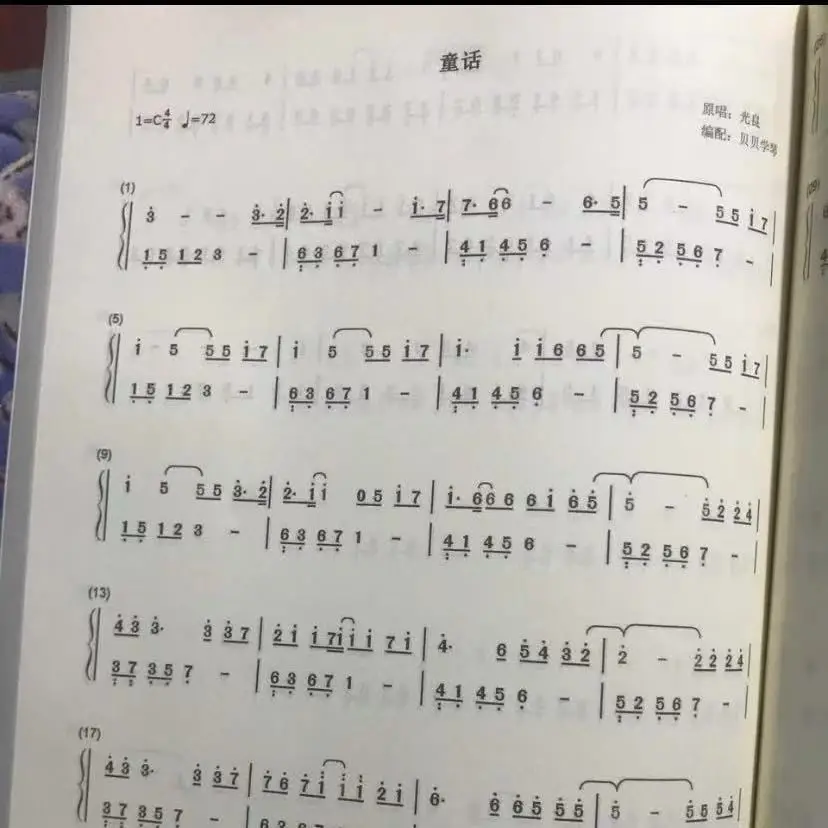 童话
1=C 4/4 ♩=72
原唱：光良
编配：贝贝学琴
(1)
3̇ - - 3̇· 2̇ | 2̇· i i - i· 7 | 7· 6 6 - 6· 5 | 5 - 5 5 i 7 |
1 5 1 2 3 - | 6 3 6 7 1 - | 4 1 4 5 6 - | 5 2 5 6 7 - |
(5)
i 5 5 5 i 7 | i 5 5 5 i 7 | i· i i 6 6 5 | 5 - 5 5 i 7 |
1 5 1 2 3 - | 6 3 6 7 1 - | 4 1 4 5 6 - | 5 2 5 6 7 - |
(9)
i 5 5 5 3̇· 2̇ | 2̇· i i 0 5 i 7 | i· 6 6 6 6 i 6 5 | 5 - 5 2̇ 2̇ 4̇ |
1 5 1 2 3 - | 6 3 6 7 1 - | 4 1 4 5 6 - | 5 2 5 6 7 - |
(13)
4̇ 3̇ 3̇· 3̇ 3̇ 7 | 2̇ i i 7 i i i 7 i | 4̇· 6 5̇ 4̇ 3̇ 2̇ | 2̇ - 2̇ 2̇ 2̇ 4̇ |
3 7 3 5 7 - | 6 3 6 7 1 - | 4 1 4 5 6 - | 5 2 5 6 7 - |
(17)
4̇ 3̇ 3̇· 3̇ 3̇ 7 | 7 6 7 i i i 2̇ i | 6· 6 6 5 5 5 | 5 - 5 5 5 4 |
3 7 3 5 7 -